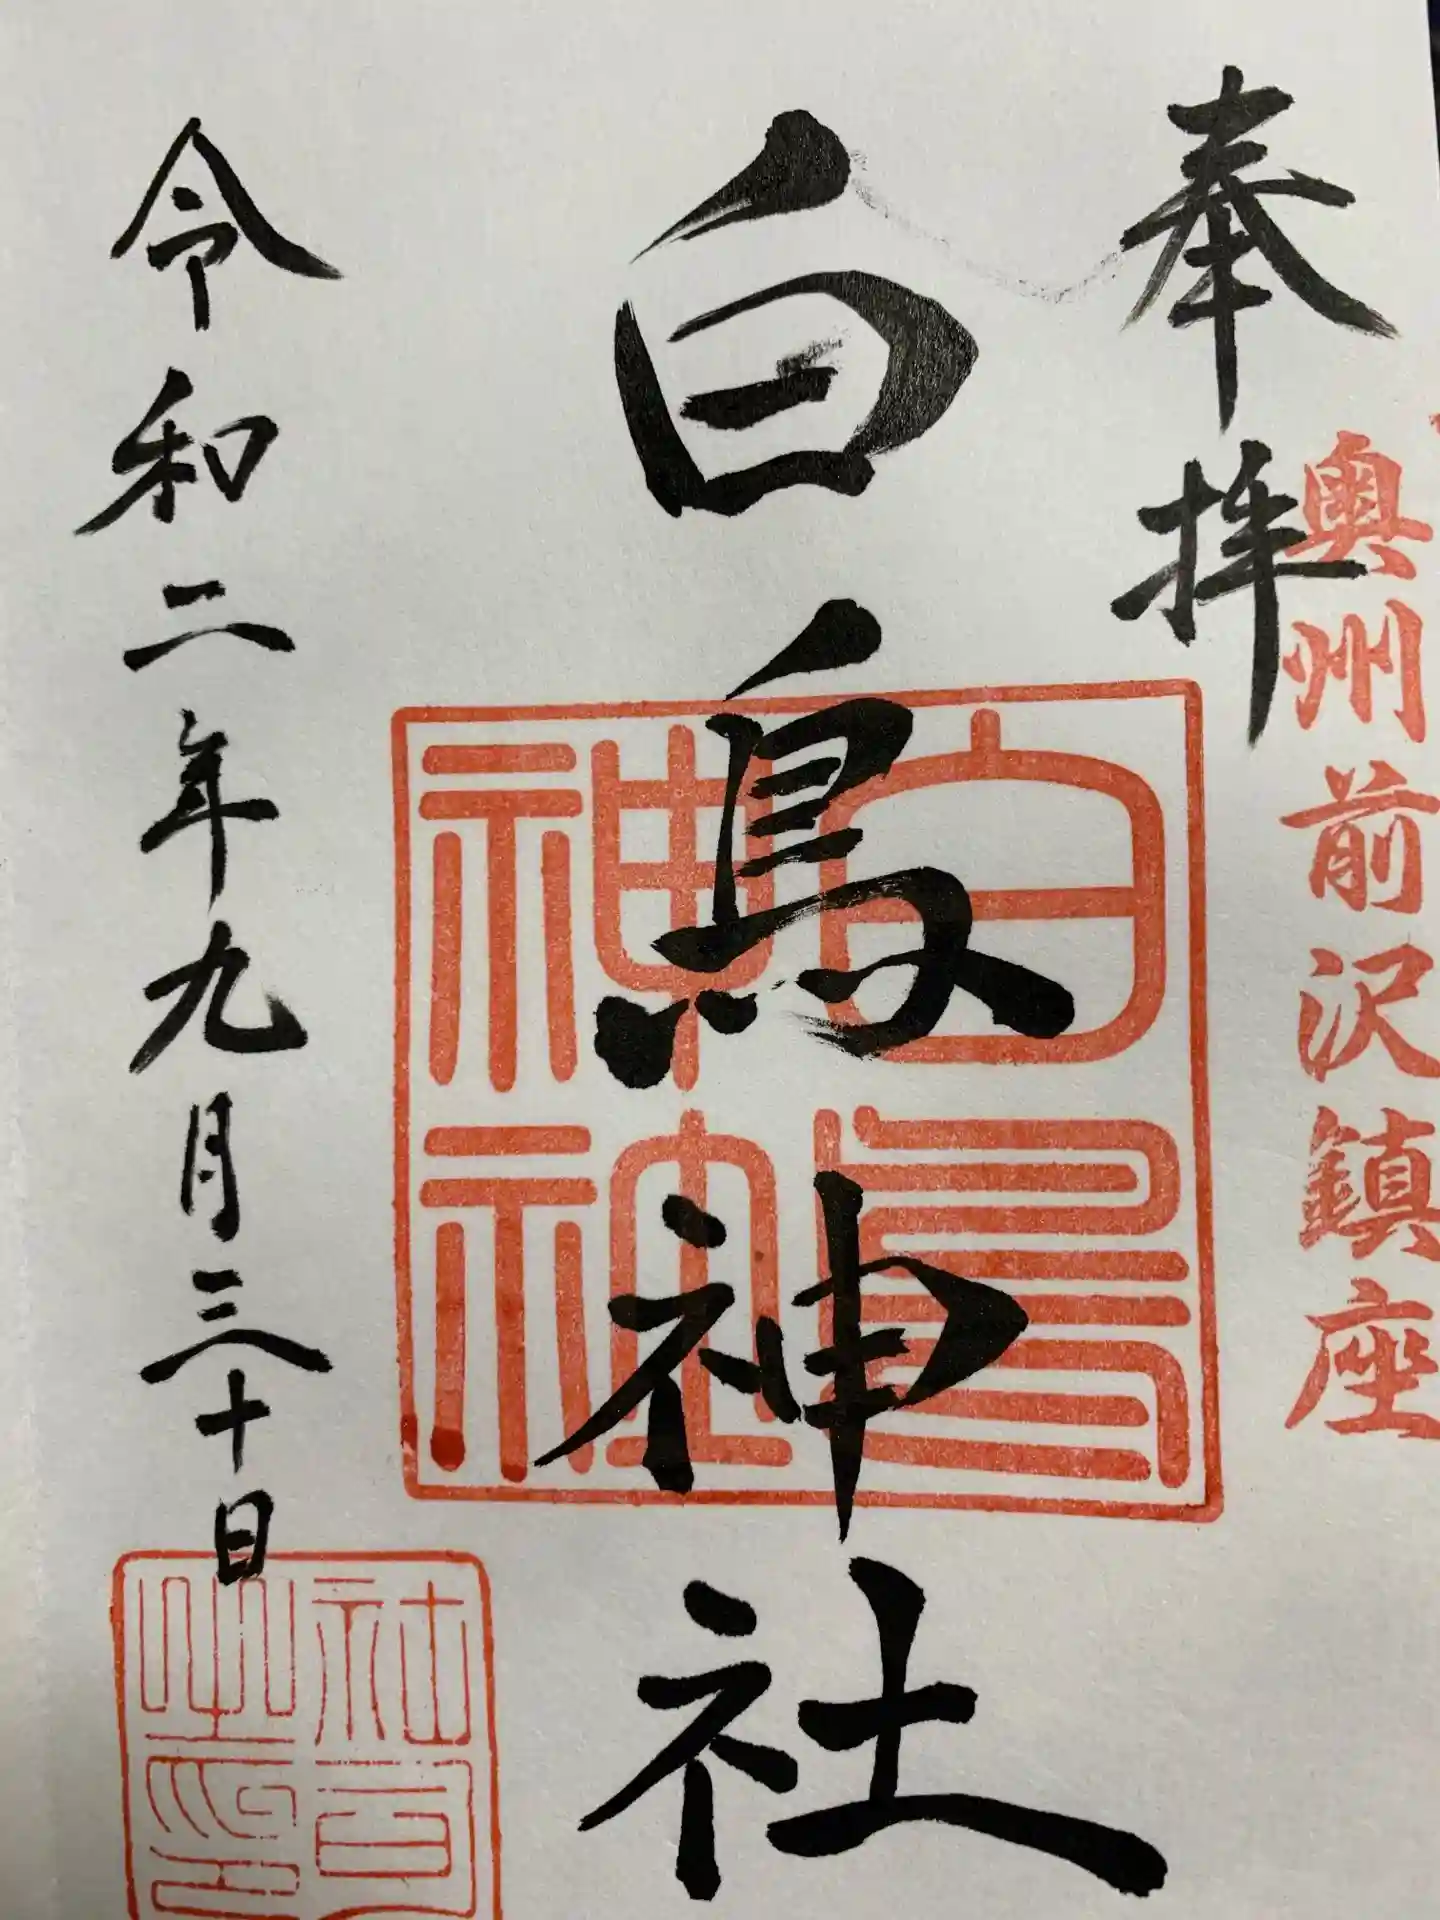 奉拝
奥州前沢鎮座
白鳥神社
白鳥
神社
令和二年九月三十日
社司
之印